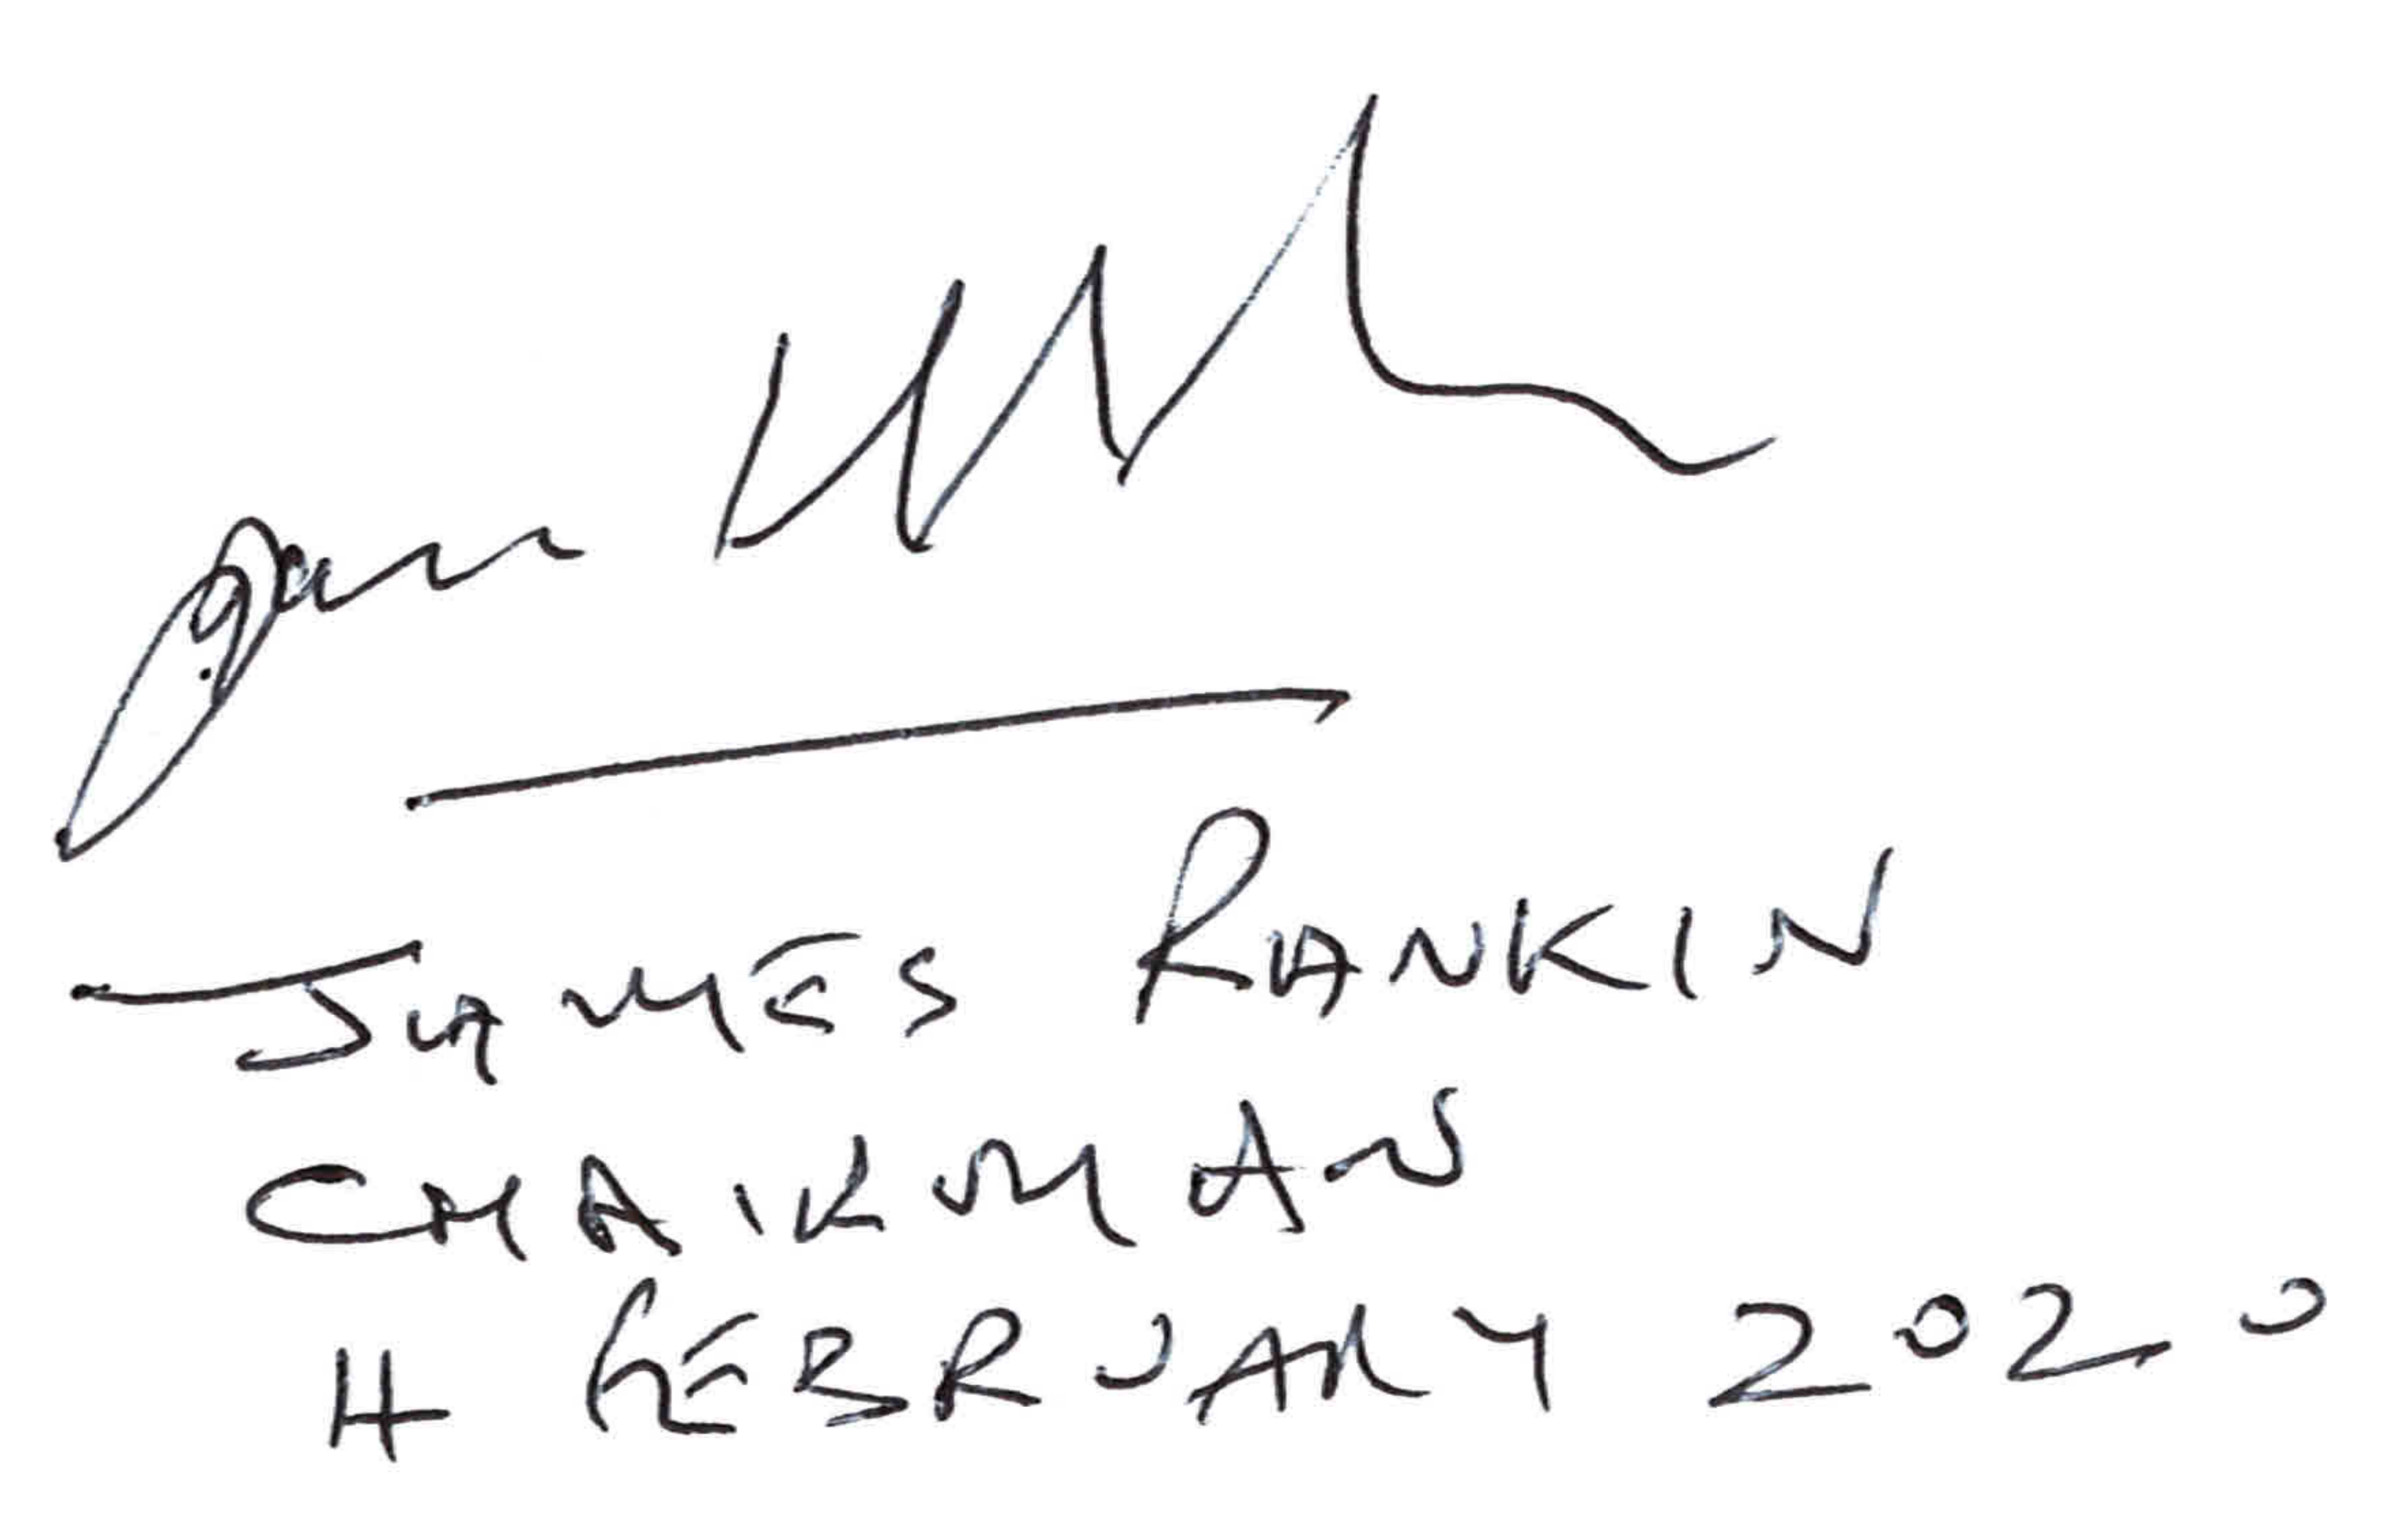 JAMES RANKIN
CHAIRMAN
4 FEBRUARY 2020